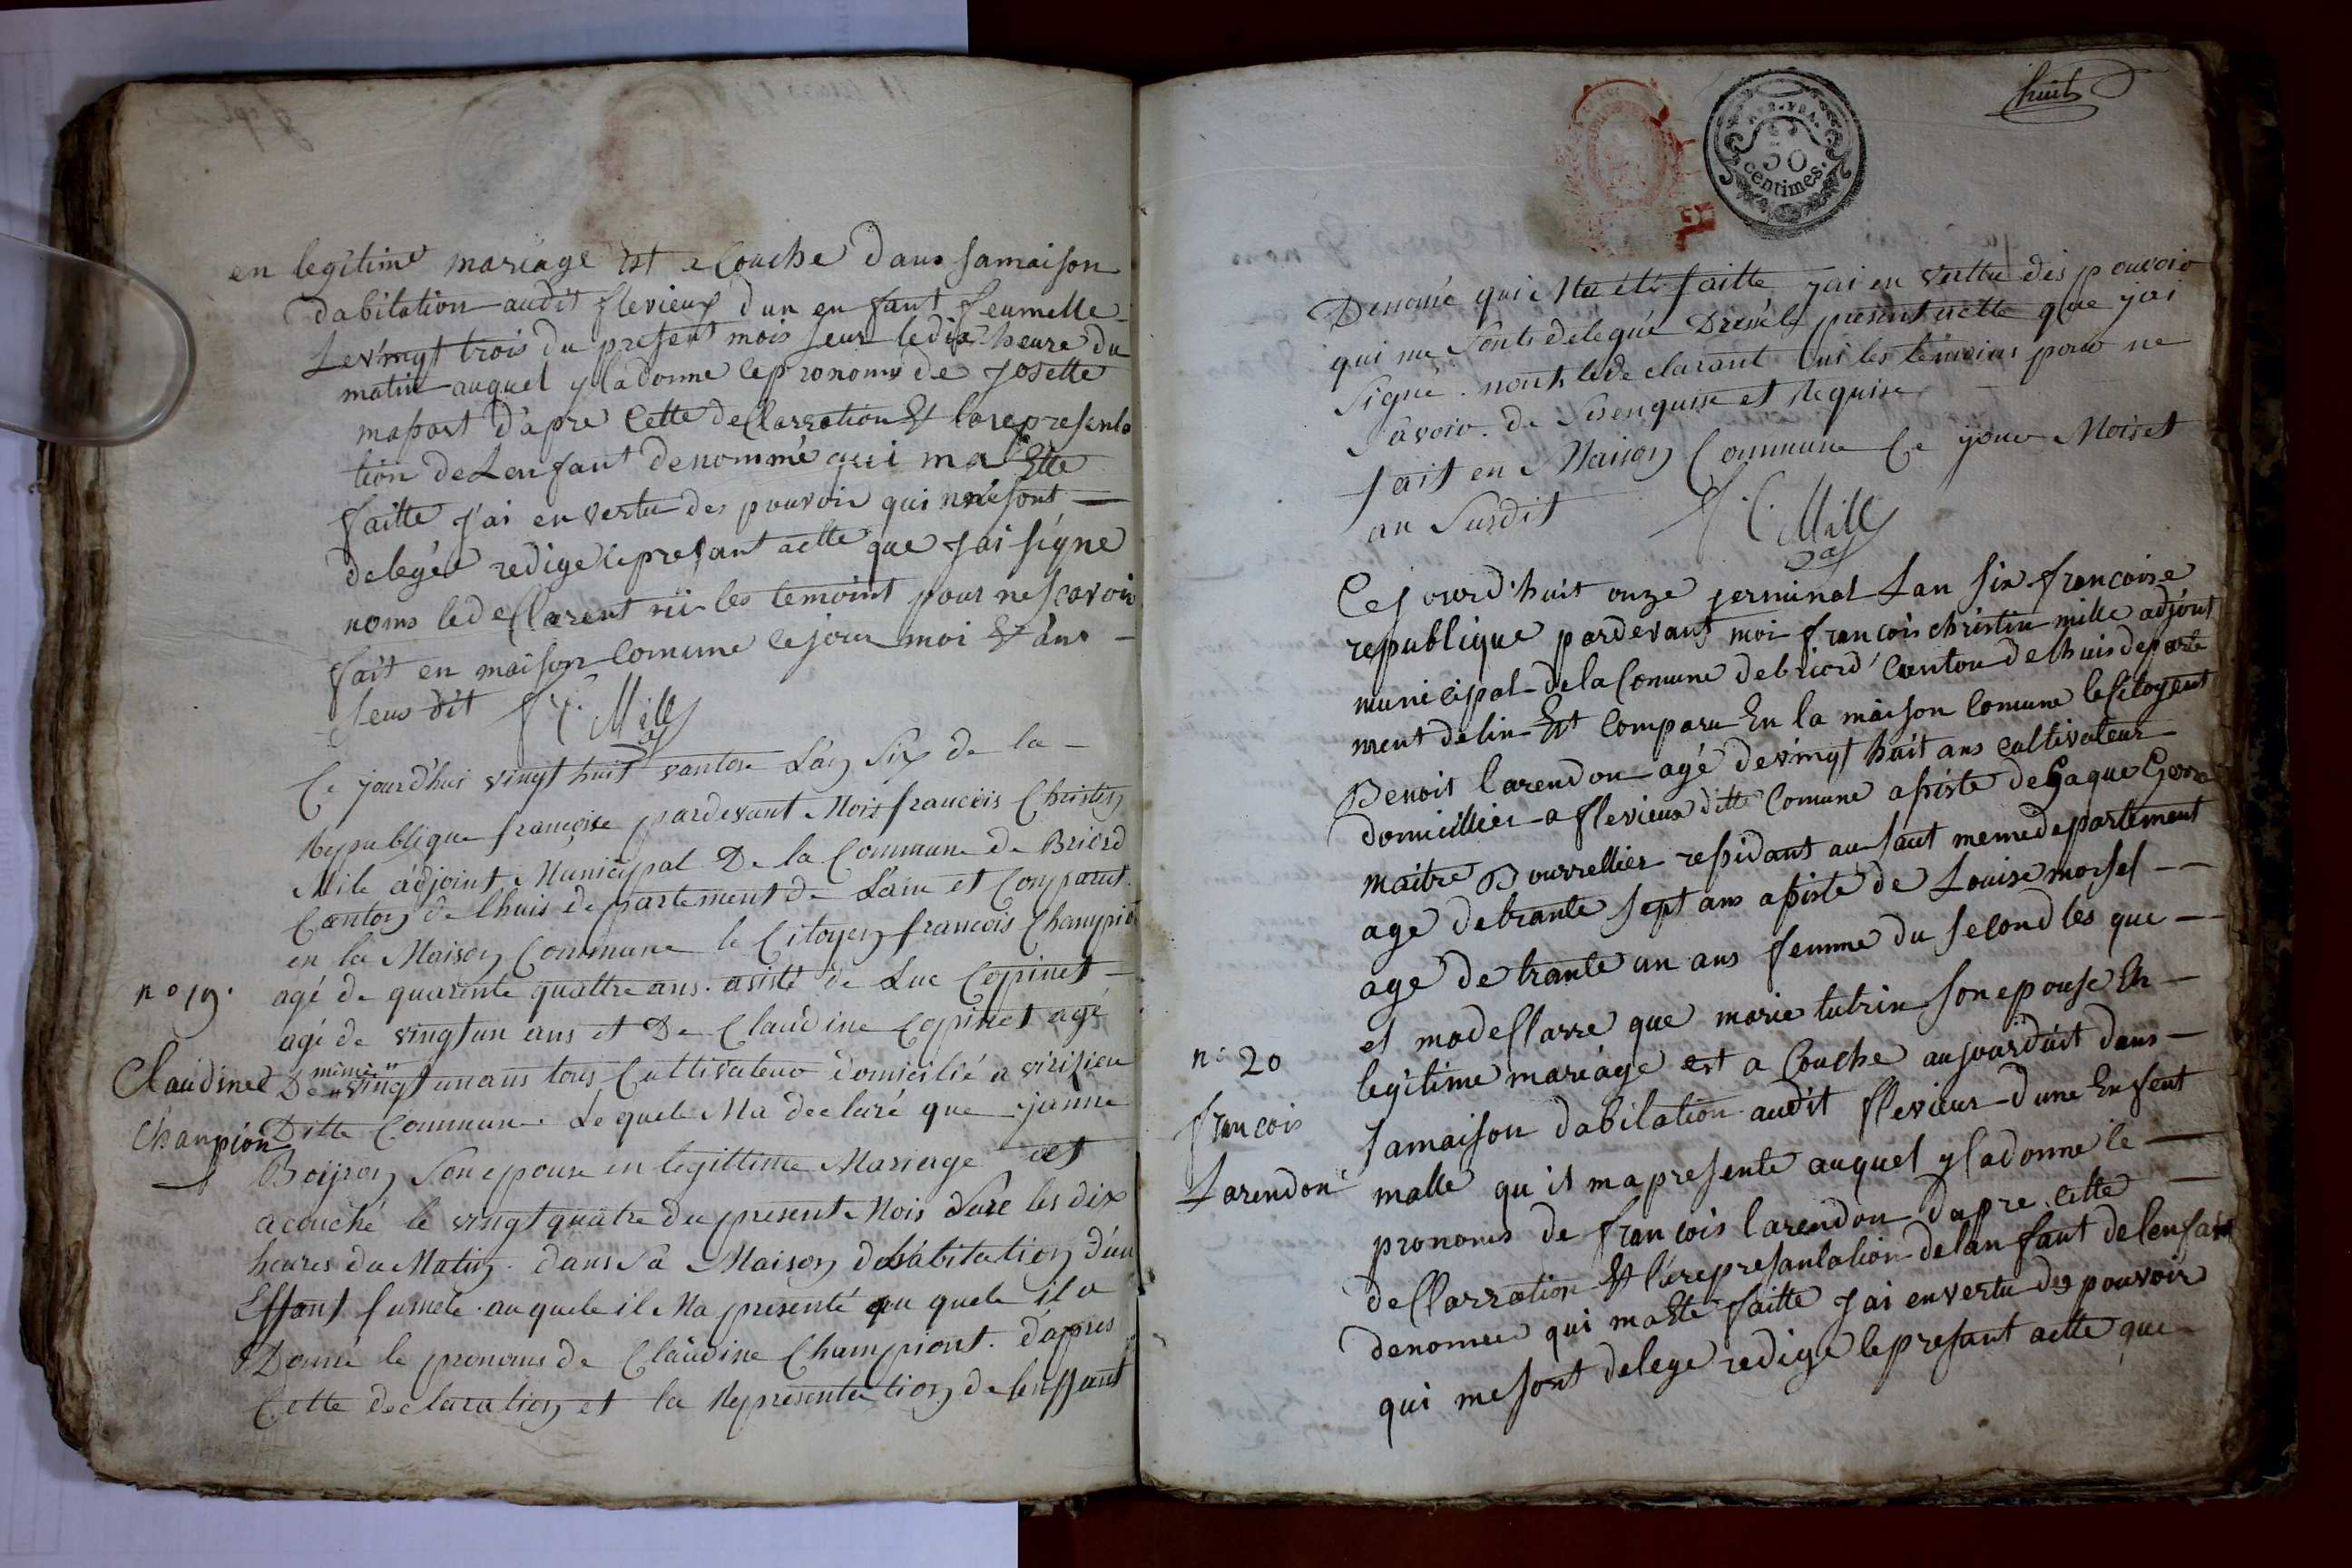 en legitime mariage est a Couche dans samaison
dabitation audit flevieux d'un en fant feumelle
Levingt trois du present mois seur le dix heure du
matin auquel yladonne lepronoms de Josette
mapart d'apre Cette decllarration Et larepresenta
tion deLenfant denommé qui ma Ette
faitte J'ai en vertu des pouvoir qui me sont
delegée redige lepresant actte que J'ai signe
noms ledecllarent ni les temoint pour nescavoir
fait en maison Comune cejour moi & ans
seus dit F C. Mille
Ce jourd'hui vingt huit vantose L'an Six de la
Republique françoise pardevant Moi francois Christin
Mile adjoint Municipal De la Commune de Briord
Canton de lhuis departement de L'ain et Comparut
en la Maison Commune le Citoyen francois Champion
agé de quarente quattre ans. asisté de Luc Copinet
agé de vingt un ans et De Claudine Copinet agé
n° 19.
Claudine
Champion
De même vingt un ans tous Cultivateur domicilié a virisieu
Ditte Commune. Le quele Ma declaré que janne
Boijron Son epouse en legittime Mariage est
acouché le vingt quatre du present Mois Sure les dix
heures du Matin. dans Sa Maison dehabitation d'un
Effant fumele. au quele il Ma presenté au quele il a
Donné le pronoms de Claudine Championt. d'apres
Cette declaration et la Representation de lenffant
huit
REP. FRA.
50
centimes.
Denomé qui Ma été faitte jai en vertu des pouvoir
qui me Sonts delegué Dresé le present actte que jai
Signé. nont le declarant Ni les temoins pour ne
Savoir. de Ses enquise et Requise
fait en Maison Commune Ce jour Mois et
an Susdit F C. Mille
Cejourd'huit onze germinal Lan six francoise
republique pardevant moi francois christin mille adjoint
municipal dela Comune debriord Canton delhuis departe
ment delin Est Comparu En la maison Comune lesitoyent
Benoit larendon agé devingt huit ans cultivateur
domicillier a flevieux ditte Comune asiste de
maitre Bourrellier residant au Saut meme departement
age detrante sept ans asisté de Louise morsel
age de trante un ans femme du second les que
et madecllarre que marie tutrin son epouse En
n° 20
francois
Larendon
legitime mariage est a Couche aujourduit dans
samaison dabitation audit flevieux d'une Enfent
malle qu il mapresente auquel yladonne le
pronoms de francois larendon dapre cette
decllarration Et larepresantation delanfant delenfant
denomee qui maEte faitte J'ai envertu des pouvoir
qui mesont delege redige lepresant actte que